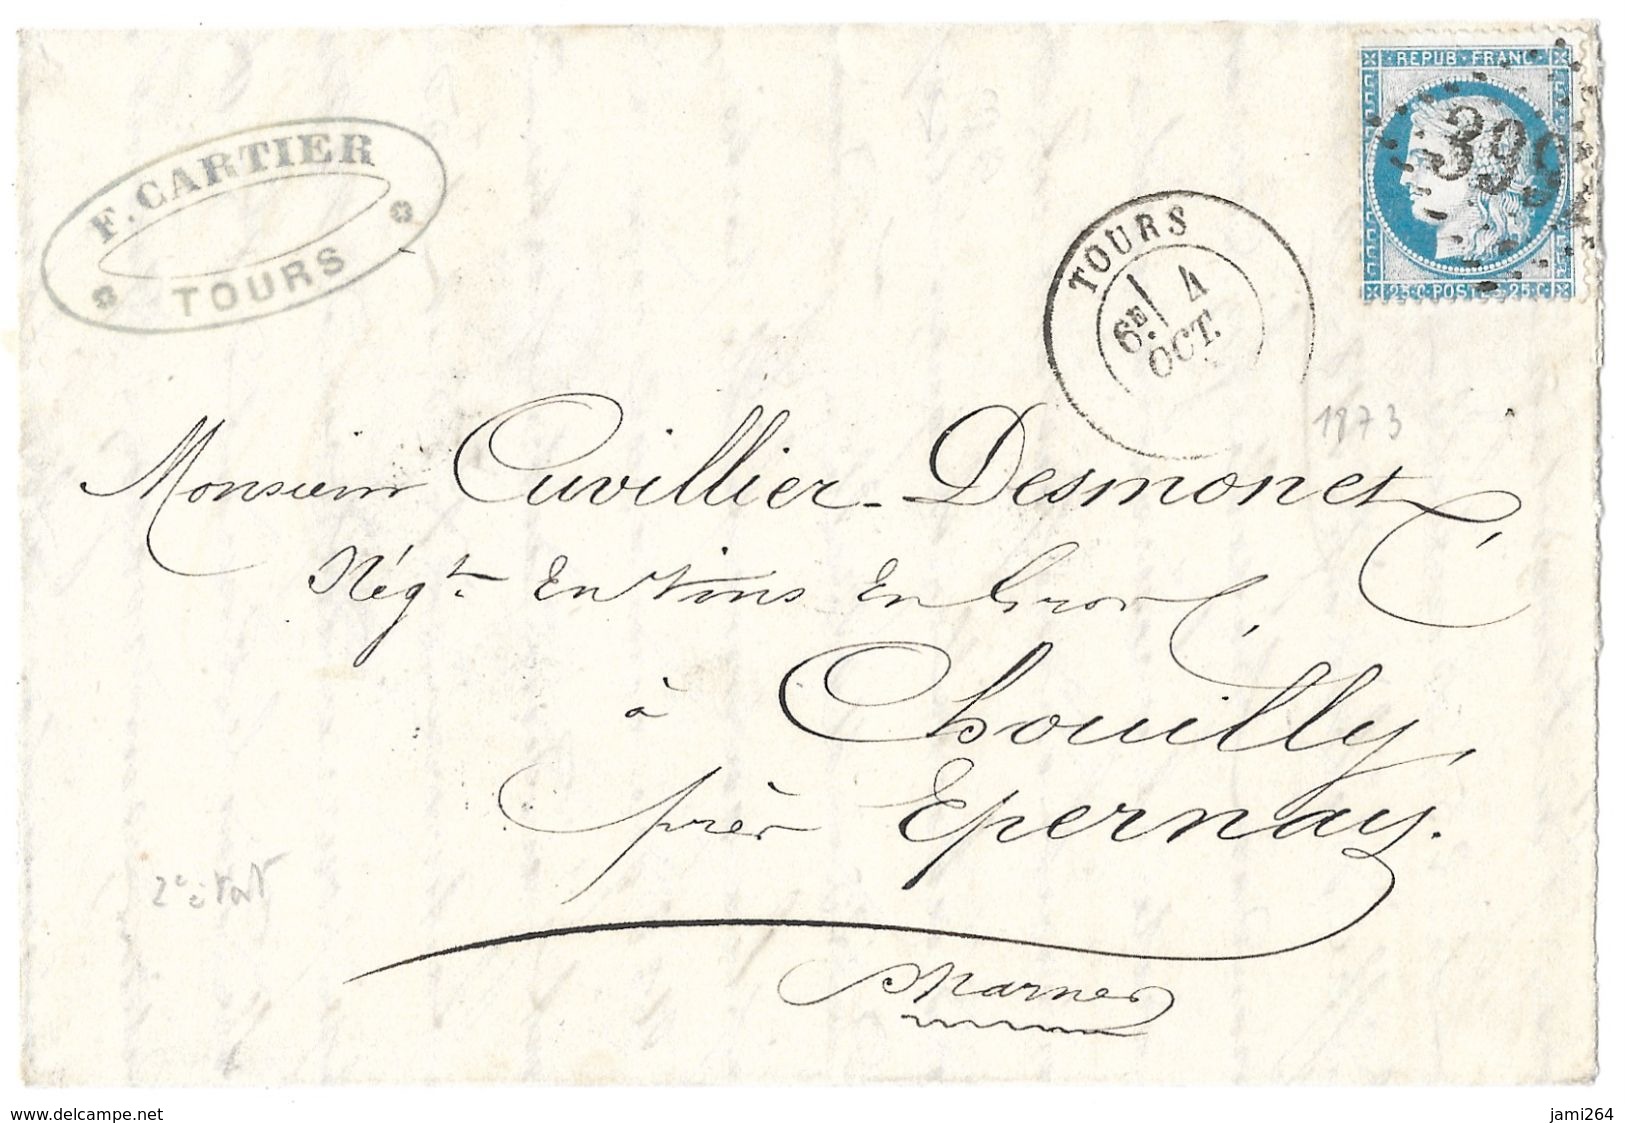 REPUB·FRANC·
3997
25·C·POSTES·25·C
F. CARTIER
TOURS
TOURS
6E 4
OCT.
1873
Monsieur Cuvillier-Desmonet
Négt. En Vins En Gros
à Chouilly,
près Epernay.
Marne
www.delcampe.net
jami264